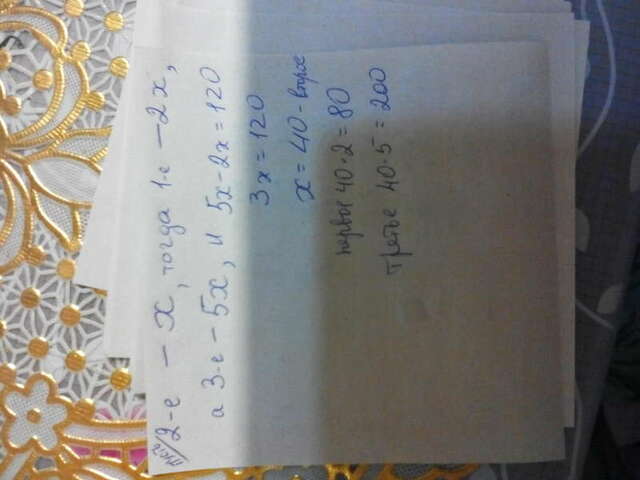 пусть 2-е – x, тогда 1-е – 2x,
а 3-е – 5x, и 5x-2x=120
3x=120
x=40 - второе
первое 40·2=80
третье 40·5=200